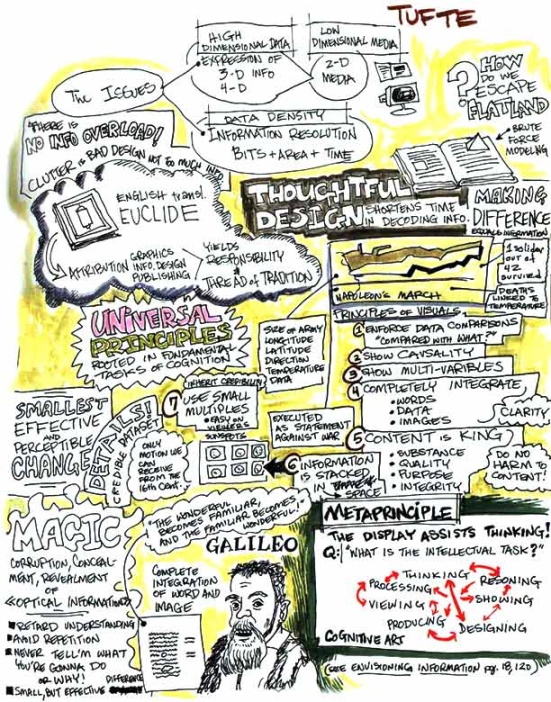 TUFTE
The Issues
HIGH
DIMENSIONAL DATA
• EXPRESSION OF
3-D INFO
4-D
LOW
DIMENSIONAL MEDIA
2-D
MEDIA
DATA DENSITY
• INFORMATION RESOLUTION
BITS + AREA + TIME
? HOW
DO WE
ESCAPE
"FLATLAND
• BRUTE
FORCE
MODELING
"THERE IS
NO INFO OVERLOAD!
CLUTTER IS BAD DESIGN NOT TOO MUCH INFO
ENGLISH transl.
EUCLIDE
ATTRIBUTION
GRAPHICS
INFO. DESIGN
PUBLISHING
YIELDS
RESPONSIBILITY
THREAD of TRADITION
THOUGHTFUL
DESIGN SHORTENS TIME
IN DECODING INFO.
MAKING
DIFFERENCE
EQUALS INFORMATION
1 soldier
out of
42
survived
DEATHS
LINKED TO
TEMPERATURE
NAPOLEON'S MARCH
SIZE OF ARMY
LONGITUDE
LATITUDE
DIRECTION
TEMPERATURE
DATA
UNIVERSAL
PRINCIPLES
ROOTED IN FUNDAMENTAL
TASKS OF COGNITION
PRINCIPLES OF VISUALS
1 ENFORCE DATA COMPARISONS
"COMPARED WITH WHAT?"
2 SHOW CAUSALITY
3 SHOW MULTI-VARIABLES
4 COMPLETELY INTEGRATE
• WORDS
• DATA
• IMAGES
CLARITY
5 CONTENT IS KING
• SUBSTANCE
• QUALITY
• PURPOSE
• INTEGRITY
DO NO
HARM TO
CONTENT!
EXECUTED
AS STATEMENT
AGAINST WAR
6 INFORMATION
IS STACKED
IN
SPACE
INHERIT CREDIBILITY
7 USE SMALL
MULTIPLES
• EASY ON
VIEWERS
SUNSPOTS
ONLY
MOTION WE
CAN
RECEIVE
FROM THE
16th CENT.
DETAILS!
CREDIBLE DATASET
SMALLEST
EFFECTIVE
AND
PERCEPTIBLE
CHANGE
MAGIC
CORRUPTION, CONCEAL
MENT, REVEALMENT
OF
«OPTICAL INFORMATION»
■ RETARD UNDERSTANDING
■ AVOID REPETITION
■ NEVER TELL'M WHAT
YOU'RE GONNA DO
OR WHY!
DIFFERENCE
■ SMALL, BUT EFFECTIVE
"THE WONDERFUL
BECOMES FAMILIAR,
AND THE FAMILIAR BECOMES
WONDERFUL"
GALILEO
COMPLETE
INTEGRATION
OF WORD AND
IMAGE
METAPRINCIPLE
THE DISPLAY ASSISTS THINKING!
Q: "WHAT IS THE INTELLECTUAL TASK?"
THINKING
PROCESSING
RESONING
VIEWING
SHOWING
PRODUCING
DESIGNING
COGNITIVE ART
(SEE ENVISIONING INFORMATION pg. 18, 120)